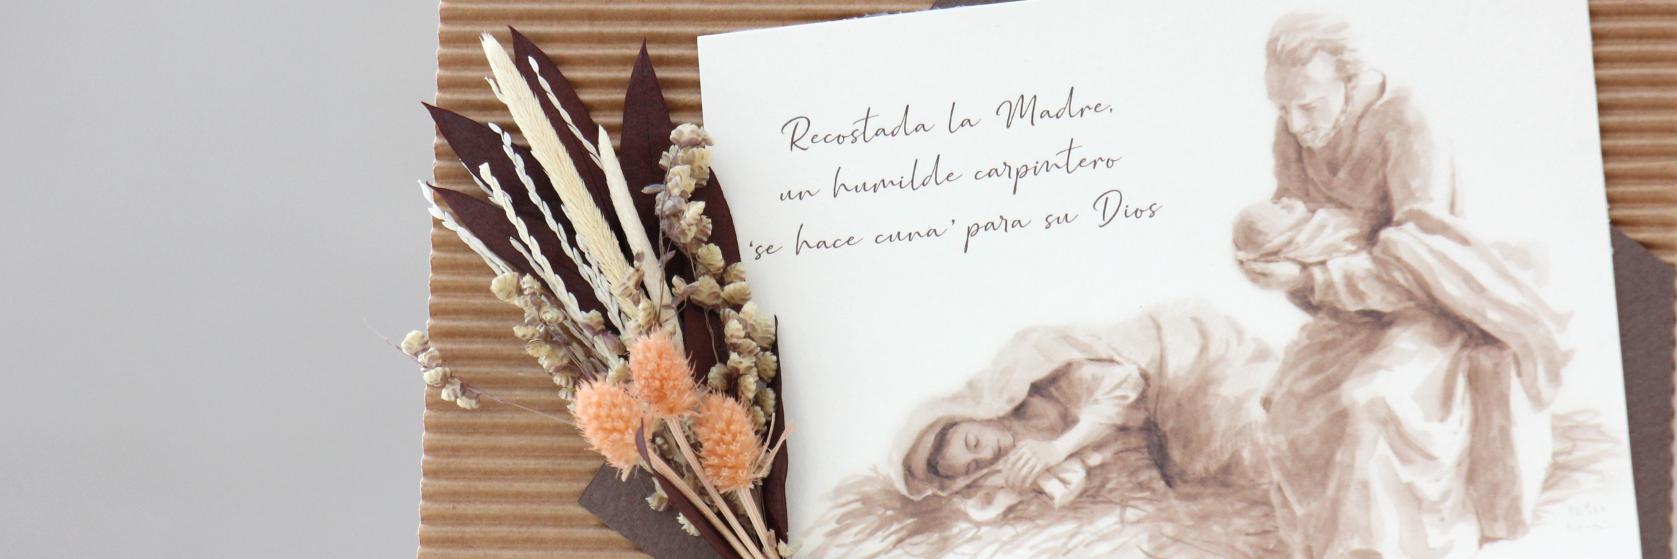 Recostada la Madre,
un humilde carpintero
'se hace cuna' para su Dios